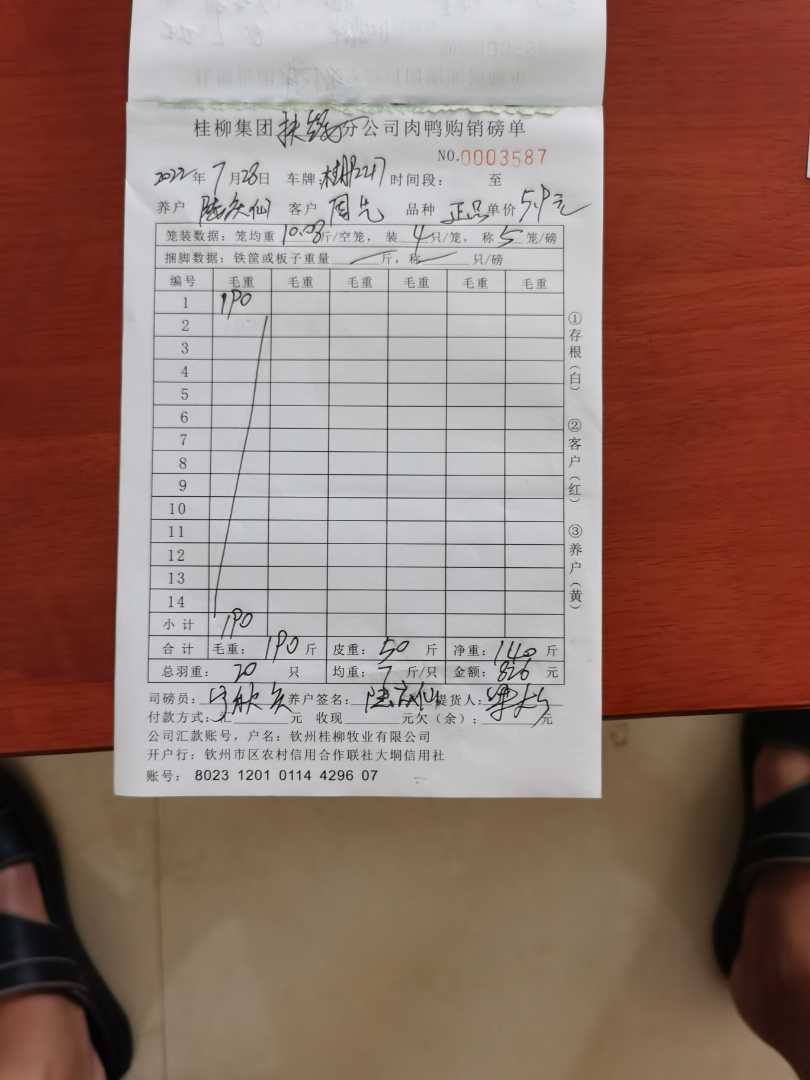 桂柳集团 分公司肉鸭购销磅单
NO.0003587
2022年7月28日 车牌： 时间段： 至
养户 客户 周先 品种 正品 单价 5.9元
笼装数据：笼均重 10.08斤/空笼，装 4只/笼，称 5笼/磅
捆脚数据：铁筐或板子重量 斤，称 只/磅
编号 毛重 毛重 毛重 毛重 毛重 毛重
1 190
2
3
4
5
6
7
8
9
10
11
12
13
14
小计 190
合计 毛重：190斤 皮重：50斤 净重：140斤
总羽重：20只 均重：7斤/只 金额：826元
司磅员： 养户签名： 提货人：
付款方式： 元 收现 元欠（余）： 元
公司汇款账号，户名：钦州桂柳牧业有限公司
开户行：钦州市区农村信用合作联社大垌信用社
账号：8023 1201 0114 4296 07
①存根（白） ②客户（红） ③养户（黄）